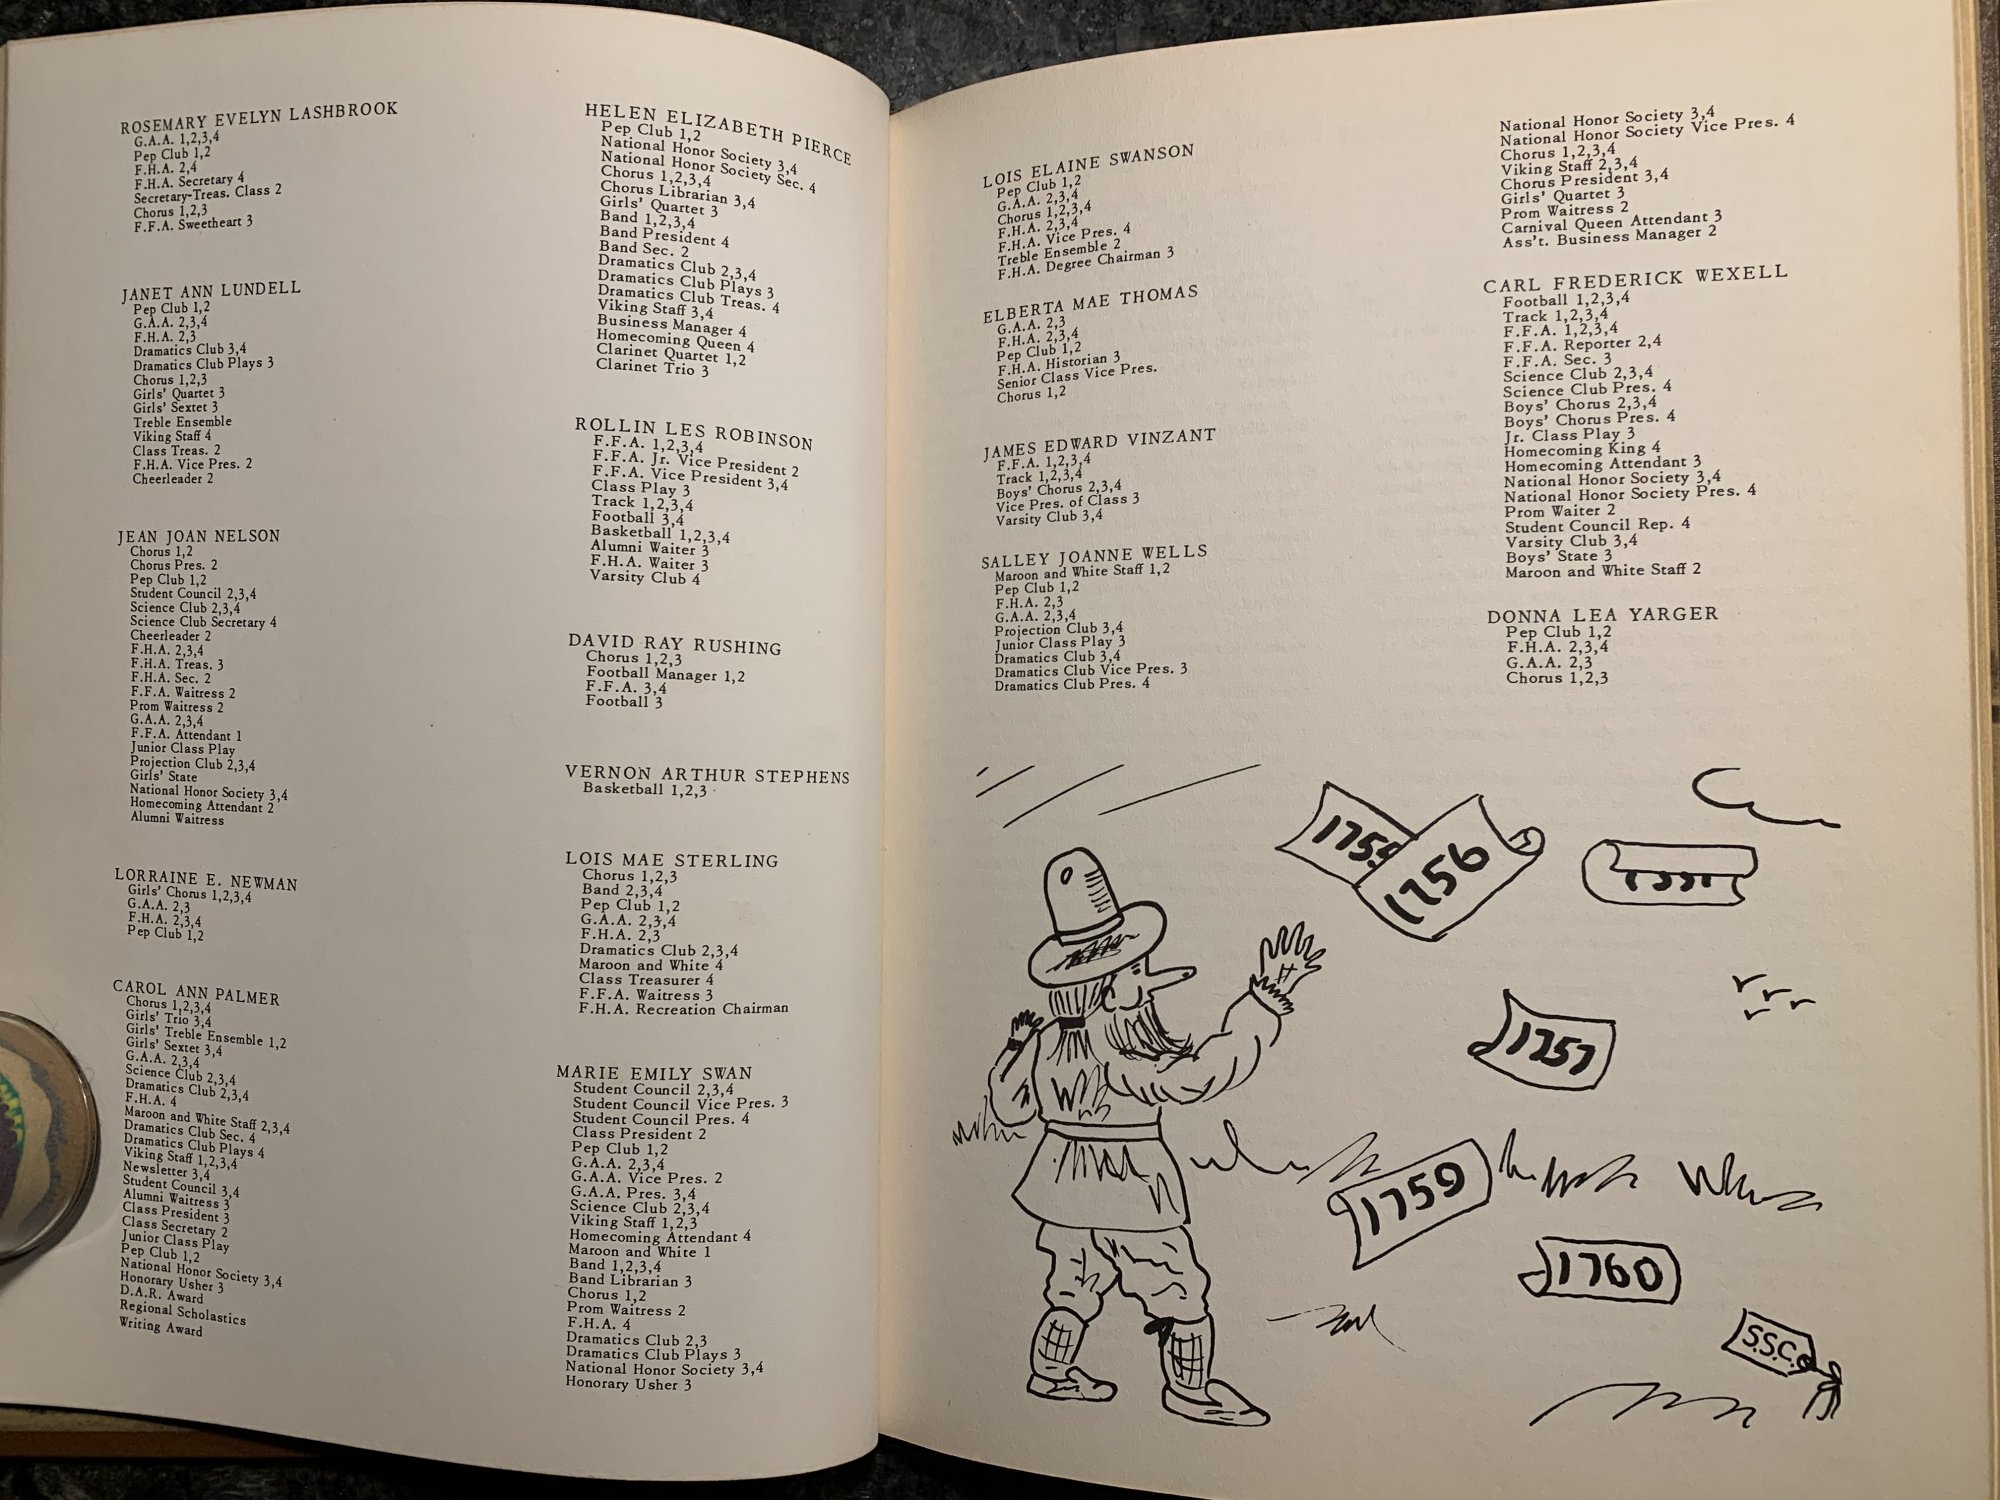 ROSEMARY EVELYN LASHBROOK
G.A.A. 1,2,3,4
Pep Club 1,2
F.H.A. 2,4
F.H.A. Secretary 4
Secretary-Treas. Class 2
Chorus 1,2,3
F.F.A. Sweetheart 3
JANET ANN LUNDELL
Pep Club 1,2
G.A.A. 2,3,4
F.H.A. 2,3
Dramatics Club 3,4
Dramatics Club Plays 3
Chorus 1,2,3
Girls' Quartet 3
Girls' Sextet 3
Treble Ensemble
Viking Staff 4
Class Treas. 2
F.H.A. Vice Pres. 2
Cheerleader 2
JEAN JOAN NELSON
Chorus 1,2
Chorus Pres. 2
Pep Club 1,2
Student Council 2,3,4
Science Club 2,3,4
Science Club Secretary 4
Cheerleader 2
F.H.A. 2,3,4
F.H.A. Treas. 3
F.H.A. Sec. 2
F.F.A. Waitress 2
Prom Waitress 2
G.A.A. 2,3,4
F.F.A. Attendant 1
Junior Class Play
Projection Club 2,3,4
Girls' State
National Honor Society 3,4
Homecoming Attendant 2
Alumni Waitress
LORRAINE E. NEWMAN
Girls' Chorus 1,2,3,4
G.A.A. 2,3
F.H.A. 2,3,4
Pep Club 1,2
CAROL ANN PALMER
Chorus 1,2,3,4
Girls' Trio 3,4
Girls' Treble Ensemble 1,2
Girls' Sextet 3,4
G.A.A. 2,3,4
Science Club 2,3,4
Dramatics Club 2,3,4
F.H.A. 4
Maroon and White Staff 2,3,4
Dramatics Club Sec. 4
Dramatics Club Plays 4
Viking Staff 1,2,3,4
Newsletter 3,4
Student Council 3,4
Alumni Waitress 3
Class President 3
Class Secretary 2
Junior Class Play
Pep Club 1,2
National Honor Society 3,4
Honorary Usher 3
D.A.R. Award
Regional Scholastics
Writing Award
HELEN ELIZABETH PIERCE
Pep Club 1,2
National Honor Society 3,4
National Honor Society Sec. 4
Chorus 1,2,3,4
Chorus Librarian 3,4
Girls' Quartet 3
Band 1,2,3,4
Band President 4
Band Sec. 2
Dramatics Club 2,3,4
Dramatics Club Plays 3
Dramatics Club Treas. 4
Viking Staff 3,4
Business Manager 4
Homecoming Queen 4
Clarinet Quartet 1,2
Clarinet Trio 3
ROLLIN LES ROBINSON
F.F.A. 1,2,3,4
F.F.A. Jr. Vice President 2
F.F.A. Vice President 3,4
Class Play 3
Track 1,2,3,4
Football 3,4
Basketball 1,2,3,4
Alumni Waiter 3
F.H.A. Waiter 3
Varsity Club 4
DAVID RAY RUSHING
Chorus 1,2,3
Football Manager 1,2
F.F.A. 3,4
Football 3
VERNON ARTHUR STEPHENS
Basketball 1,2,3
LOIS MAE STERLING
Chorus 1,2,3
Band 2,3,4
Pep Club 1,2
G.A.A. 2,3,4
F.H.A. 2,3
Dramatics Club 2,3,4
Maroon and White 4
Class Treasurer 4
F.F.A. Waitress 3
F.H.A. Recreation Chairman
MARIE EMILY SWAN
Student Council 2,3,4
Student Council Vice Pres. 3
Student Council Pres. 4
Class President 2
Pep Club 1,2
G.A.A. 2,3,4
G.A.A. Vice Pres. 2
G.A.A. Pres. 3,4
Science Club 2,3,4
Viking Staff 1,2,3
Homecoming Attendant 4
Maroon and White 1
Band 1,2,3,4
Band Librarian 3
Chorus 1,2
Prom Waitress 2
F.H.A. 4
Dramatics Club 2,3
Dramatics Club Plays 3
National Honor Society 3,4
Honorary Usher 3
LOIS ELAINE SWANSON
Pep Club 1,2
G.A.A. 2,3,4
Chorus 1,2,3,4
F.H.A. 2,3,4
F.H.A. Vice Pres. 4
Treble Ensemble 2
F.H.A. Degree Chairman 3
ELBERTA MAE THOMAS
G.A.A. 2,3
F.H.A. 2,3,4
Pep Club 1,2
F.H.A. Historian 3
Senior Class Vice Pres.
Chorus 1,2
JAMES EDWARD VINZANT
F.F.A. 1,2,3,4
Track 1,2,3,4
Boys' Chorus 2,3,4
Vice Pres. of Class 3
Varsity Club 3,4
SALLEY JOANNE WELLS
Maroon and White Staff 1,2
Pep Club 1,2
F.H.A. 2,3
G.A.A. 2,3,4
Projection Club 3,4
Junior Class Play 3
Dramatics Club 3,4
Dramatics Club Vice Pres. 3
Dramatics Club Pres. 4
National Honor Society 3,4
National Honor Society Vice Pres. 4
Chorus 1,2,3,4
Viking Staff 2,3,4
Chorus President 3,4
Girls' Quartet 3
Prom Waitress 2
Carnival Queen Attendant 3
Ass't. Business Manager 2
CARL FREDERICK WEXELL
Football 1,2,3,4
Track 1,2,3,4
F.F.A. 1,2,3,4
F.F.A. Reporter 2,4
F.F.A. Sec. 3
Science Club 2,3,4
Science Club Pres. 4
Boys' Chorus 2,3,4
Boys' Chorus Pres. 4
Jr. Class Play 3
Homecoming King 4
Homecoming Attendant 3
National Honor Society 3,4
National Honor Society Pres. 4
Prom Waiter 2
Student Council Rep. 4
Varsity Club 3,4
Boys' State 3
Maroon and White Staff 2
DONNA LEA YARGER
Pep Club 1,2
F.H.A. 2,3,4
G.A.A. 2,3
Chorus 1,2,3
1756
1757
1759
1760
S.S.C.